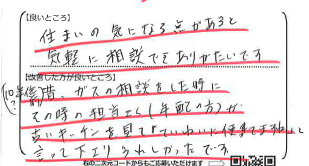 【良いところ】
住まいの気になる点があると
気軽に相談でき ありがたいです
【改善した方が良いところ】
(10年位前)昔、ガスの相談をした時に
その時の担当さん(年配の方)が
古いキッチンを見て「ていねいに使ってますね」と
言って下さりうれしかったです。
右の二次元コードからもご応募いただけます